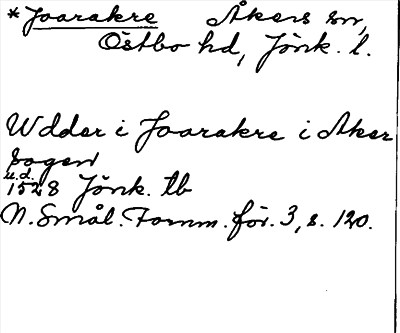 *Joarakre Åkers sn,
Östbo hd, Jönk. l.
Udder i Joarakre i Aker
sogen
u.d.
1528 Jönk. tb
N. Smål. Fornm. för. 3, s. 120.